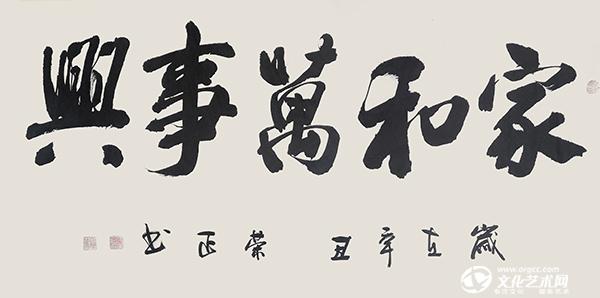 家和萬事興
歲在辛丑 榮正书
www.orgcc.com
文化艺术网